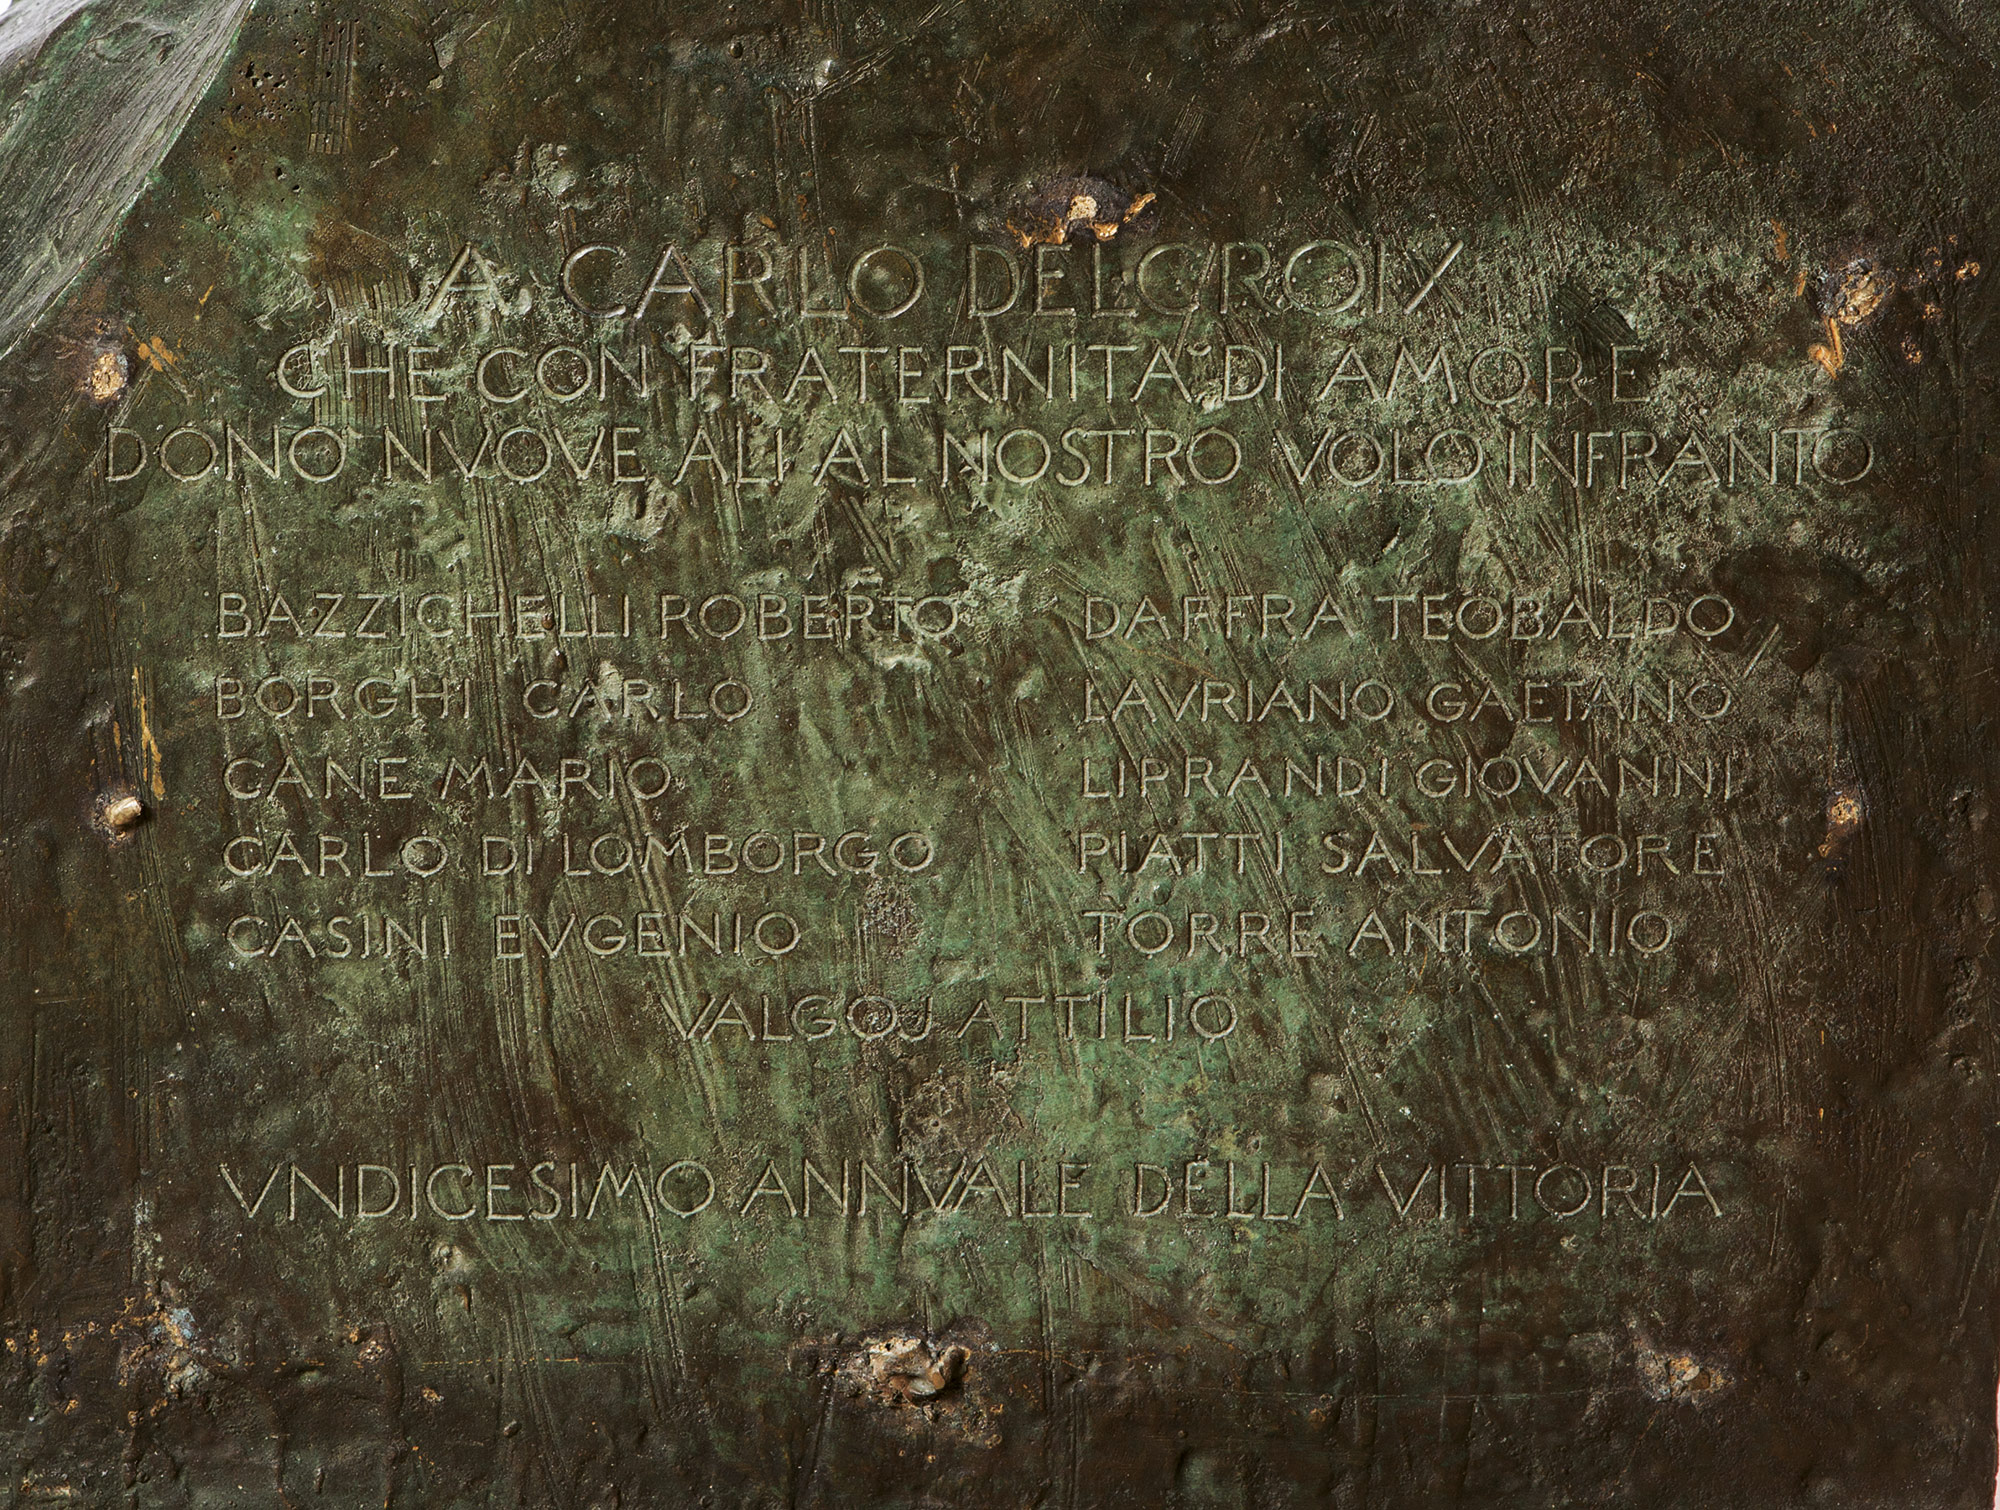 A CARLO DELCROIX
CHE CON FRATERNITA DI AMORE
DONO NVOVE ALI AL NOSTRO VOLO INFRANTO
BAZZICHELLI ROBERTO
BORGHI CARLO
CANE MARIO
CARLO DI LOMBORGO
CASINI EVGENIO
DAFFRA TEOBALDO
LAVRIANO GAETANO
LIPRANDI GIOVANNI
PIATTI SALVATORE
TORRE ANTONIO
VALGOJ ATTILIO
VNDICESIMO ANNVALE DELLA VITTORIA